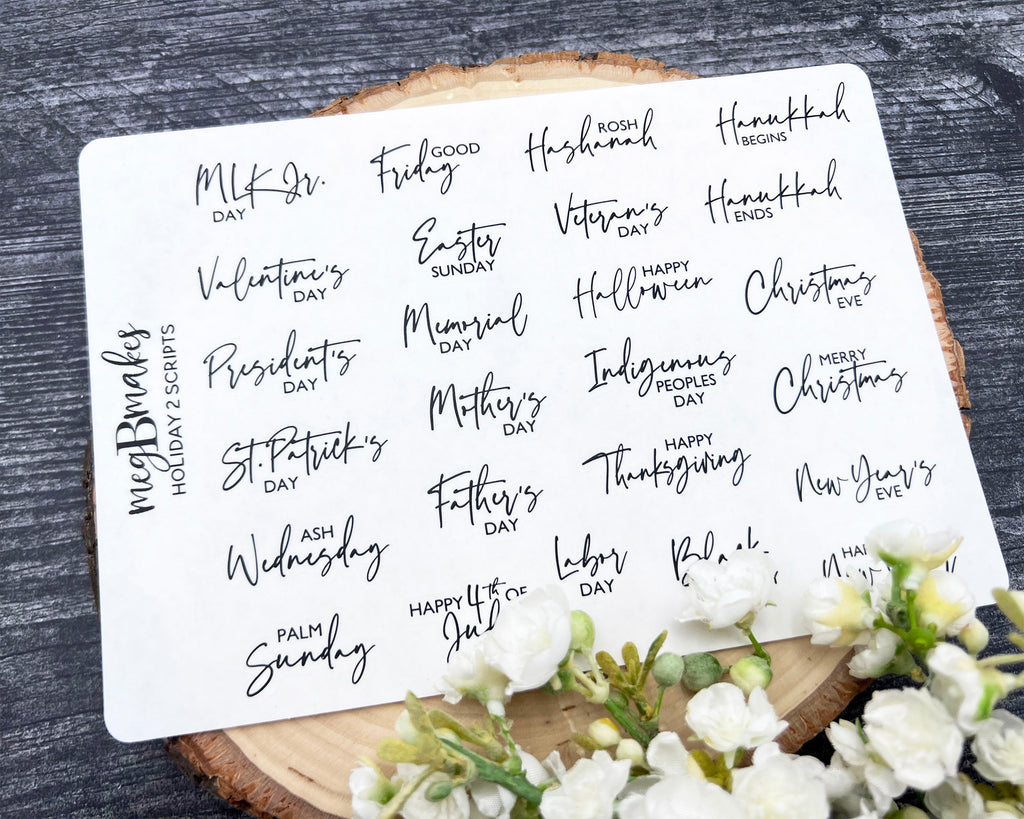 megBmakes
HOLIDAY 2 SCRIPTS
MLK Jr.
DAY
Valentine's
DAY
President's
DAY
St. Patrick's
DAY
ASH
Wednesday
PALM
Sunday
GOOD
Friday
Easter
SUNDAY
Memorial
DAY
Mother's
DAY
Father's
DAY
HAPPY 4th OF
ROSH
Hashanah
Veteran's
DAY
HAPPY
Halloween
Indigenous
PEOPLES
DAY
HAPPY
Thanksgiving
Labor
DAY
Black
Hanukkah
BEGINS
Hanukkah
ENDS
Christmas
EVE
MERRY
Christmas
New Year's
EVE